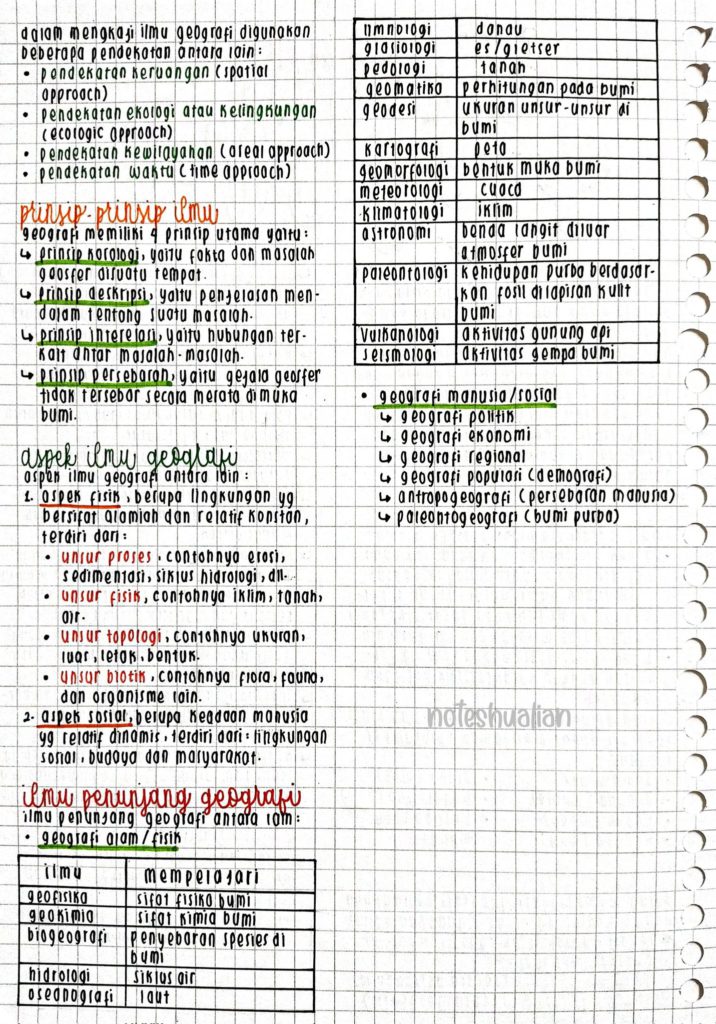 dalam mengkaji ilmu geografi digunakan
beberapa pendekatan antara lain:
• pendekatan keruangan (spatial
approach)
• pendekatan ekologi atau kelingkungan
(ecologic approach)
• pendekatan kewilayahan (areal approach)
• pendekatan waktu (time approach)
prinsip-prinsip ilmu
geografi memiliki 4 prinsip utama yaitu:
↳ prinsip korologi, yaitu fakta dan masalah
geosfer disuatu tempat.
↳ prinsip deskripsi, yaitu penjelasan men-
dalam tentang suatu masalah.
↳ prinsip interelasi, yaitu hubungan ter-
kait antar masalah-masalah.
↳ prinsip persebaran, yaitu gejala geosfer
tidak tersebar secara merata di muka
bumi.
aspek ilmu geografi
aspek ilmu geografi antara lain:
1. aspek fisik, berupa lingkungan yg
bersifat alamiah dan relatif konstan,
terdiri dari:
• unsur proses, contohnya erosi,
sedimentasi, siklus hidrologi, dll.
• unsur fisik, contohnya iklim, tanah,
air.
• unsur topologi, contohnya ukuran,
luas, letak, bentuk.
• unsur biotik, contohnya flora, fauna,
dan organisme lain.
2. aspek sosial, berupa keadaan manusia
yg relatif dinamis, terdiri dari: lingkungan
sosial, budaya dan masyarakat.
ilmu penunjang geografi
ilmu penunjang geografi antara lain:
• geografi alam/fisik
ilmu mempelajari
geofisika sifat fisika bumi
geokimia sifat kimia bumi
biogeografi penyebaran spesies di
bumi
hidrologi siklus air
oseanografi laut
limnologi danau
glasiologi es/gletser
pedologi tanah
geomatika perhitungan pada bumi
geodesi ukuran unsur-unsur di
bumi
kartografi peta
geomorfologi bentuk muka bumi
meteorologi cuaca
klimatologi iklim
astronomi benda langit diluar
atmosfer bumi
paleontologi kehidupan purba berdasar-
kan fosil dilapisan kulit
bumi
vulkanologi aktivitas gunung api
seismologi aktivitas gempa bumi
• geografi manusia/sosial
↳ geografi politik
↳ geografi ekonomi
↳ geografi regional
↳ geografi populasi (demografi)
↳ antropogeografi (persebaran manusia)
↳ paleontogeografi (bumi purba)
noteshualian